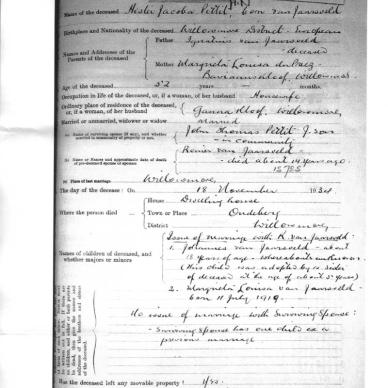 Name of the deceased Hester Jacoba Pettit born van Jaarsveld
Birthplace and Nationality of the deceased Willowmore District - European
Names and Addresses of the Parents of the deceased
Father Ignatius van Jaarsveld - deceased
Mother Margrieta Louisa du Preez
Baviaanskloof, Willowmore
Age of the deceased 52 years months.
Occupation in life of the deceased, or, if a woman, of her husband Housewife
Ordinary place of residence of the deceased, or, if a woman, of her husband Kloof, Willowmore,
Married or unmarried, widower or widow Married
(a) Name of surviving spouse (if any), and whether married in community of property or not.
John Thomas Pettit
in community
(b) Name or Names and approximate date of death of pre-deceased spouse or spouses
van Jaarsveld -
died about 14 years ago.
(c) Place of last marriage. Willowmore,
The day of the decease: On 18 November 1934
Where the person died
House Dwelling house
Town or Place Oudeberg
District Willowmore,
Names of children of deceased, and whether majors or minors
Issue of marriage with R. van Jaarsveld:
1. Johannes van Jaarsveld - about
18 years of age - whereabouts unknown.
(This child was adopted by a sister
of deceased at the age of about 3 years)
2. Margrieta Louisa van Jaarsveld -
born 11 July 1919.
No issue of marriage with surviving spouse:
- Surviving spouse has one child ex a
previous marriage
Has the deceased left any movable property